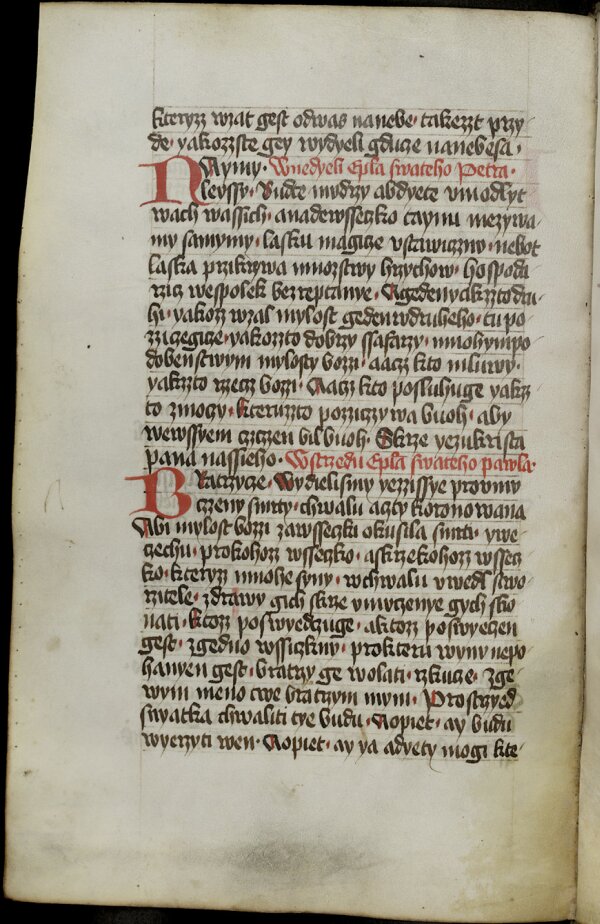 kteryzz wzat gest odwas nanebe· takezzt przy-
de· yakozzste gey wydyeli gducze nanebesa·
Naymy· Wnedyeli Epla swateho Petra·
leyssy· Budte mudrzy abdyete vmodlyt
wach wassich· anadewsseczko taynu mezywa-
my samymy· lasku magicze vstawicznu· nebot
laska przikrywa mnozstwy hrzychow· hospoda
rzicz wespolek bezreptanye· Agedenycikzztodru-
hi· yakozz wzal mylost gedenwdruheho· tu po-
zziczegicze· yakozzto dobrzy ssafarzy· mnohympo
dobenstwym mylosty bozzi· aacz kto mluwy·
yakzto rzecz bozzi· Aacz kto posluhuge yakz
to zmoczy· kteruzto pozziczywa buoh· aby
wewssyem czczen bil buoh· Skrze yezukrista
pana nassieho· Wstrzedu Epla swateho pawla·
Bratrzycze· Wydielismy yezzissye prowmu-
czeny smrty· chwalu acżty koronowana
Abi mylost bozzi zawsseczki okusila smrti· ywe-
czechu· prokohozz wsseczko· askrzekohozz wssecz-
ko· kteryzz mnohe syny· wchwalu vwedl stwo-
rzitele· zdrawy gich skrze vmuczenye gych sko
nati· ktozz poswyeczuge· aktozz poswyeczen
gest· zgednoho wssiczkny· prokteru wynu nepo-
hanyen gest· bratrzy ge wolati· rzkucze· zge-
wym meno twe bratrzym mym· Prostrzed
swatka chwaliti tye budu· Aopiet· ay budu
wyerzyti wen· Aopiet· ay ya adyety mogi kte-